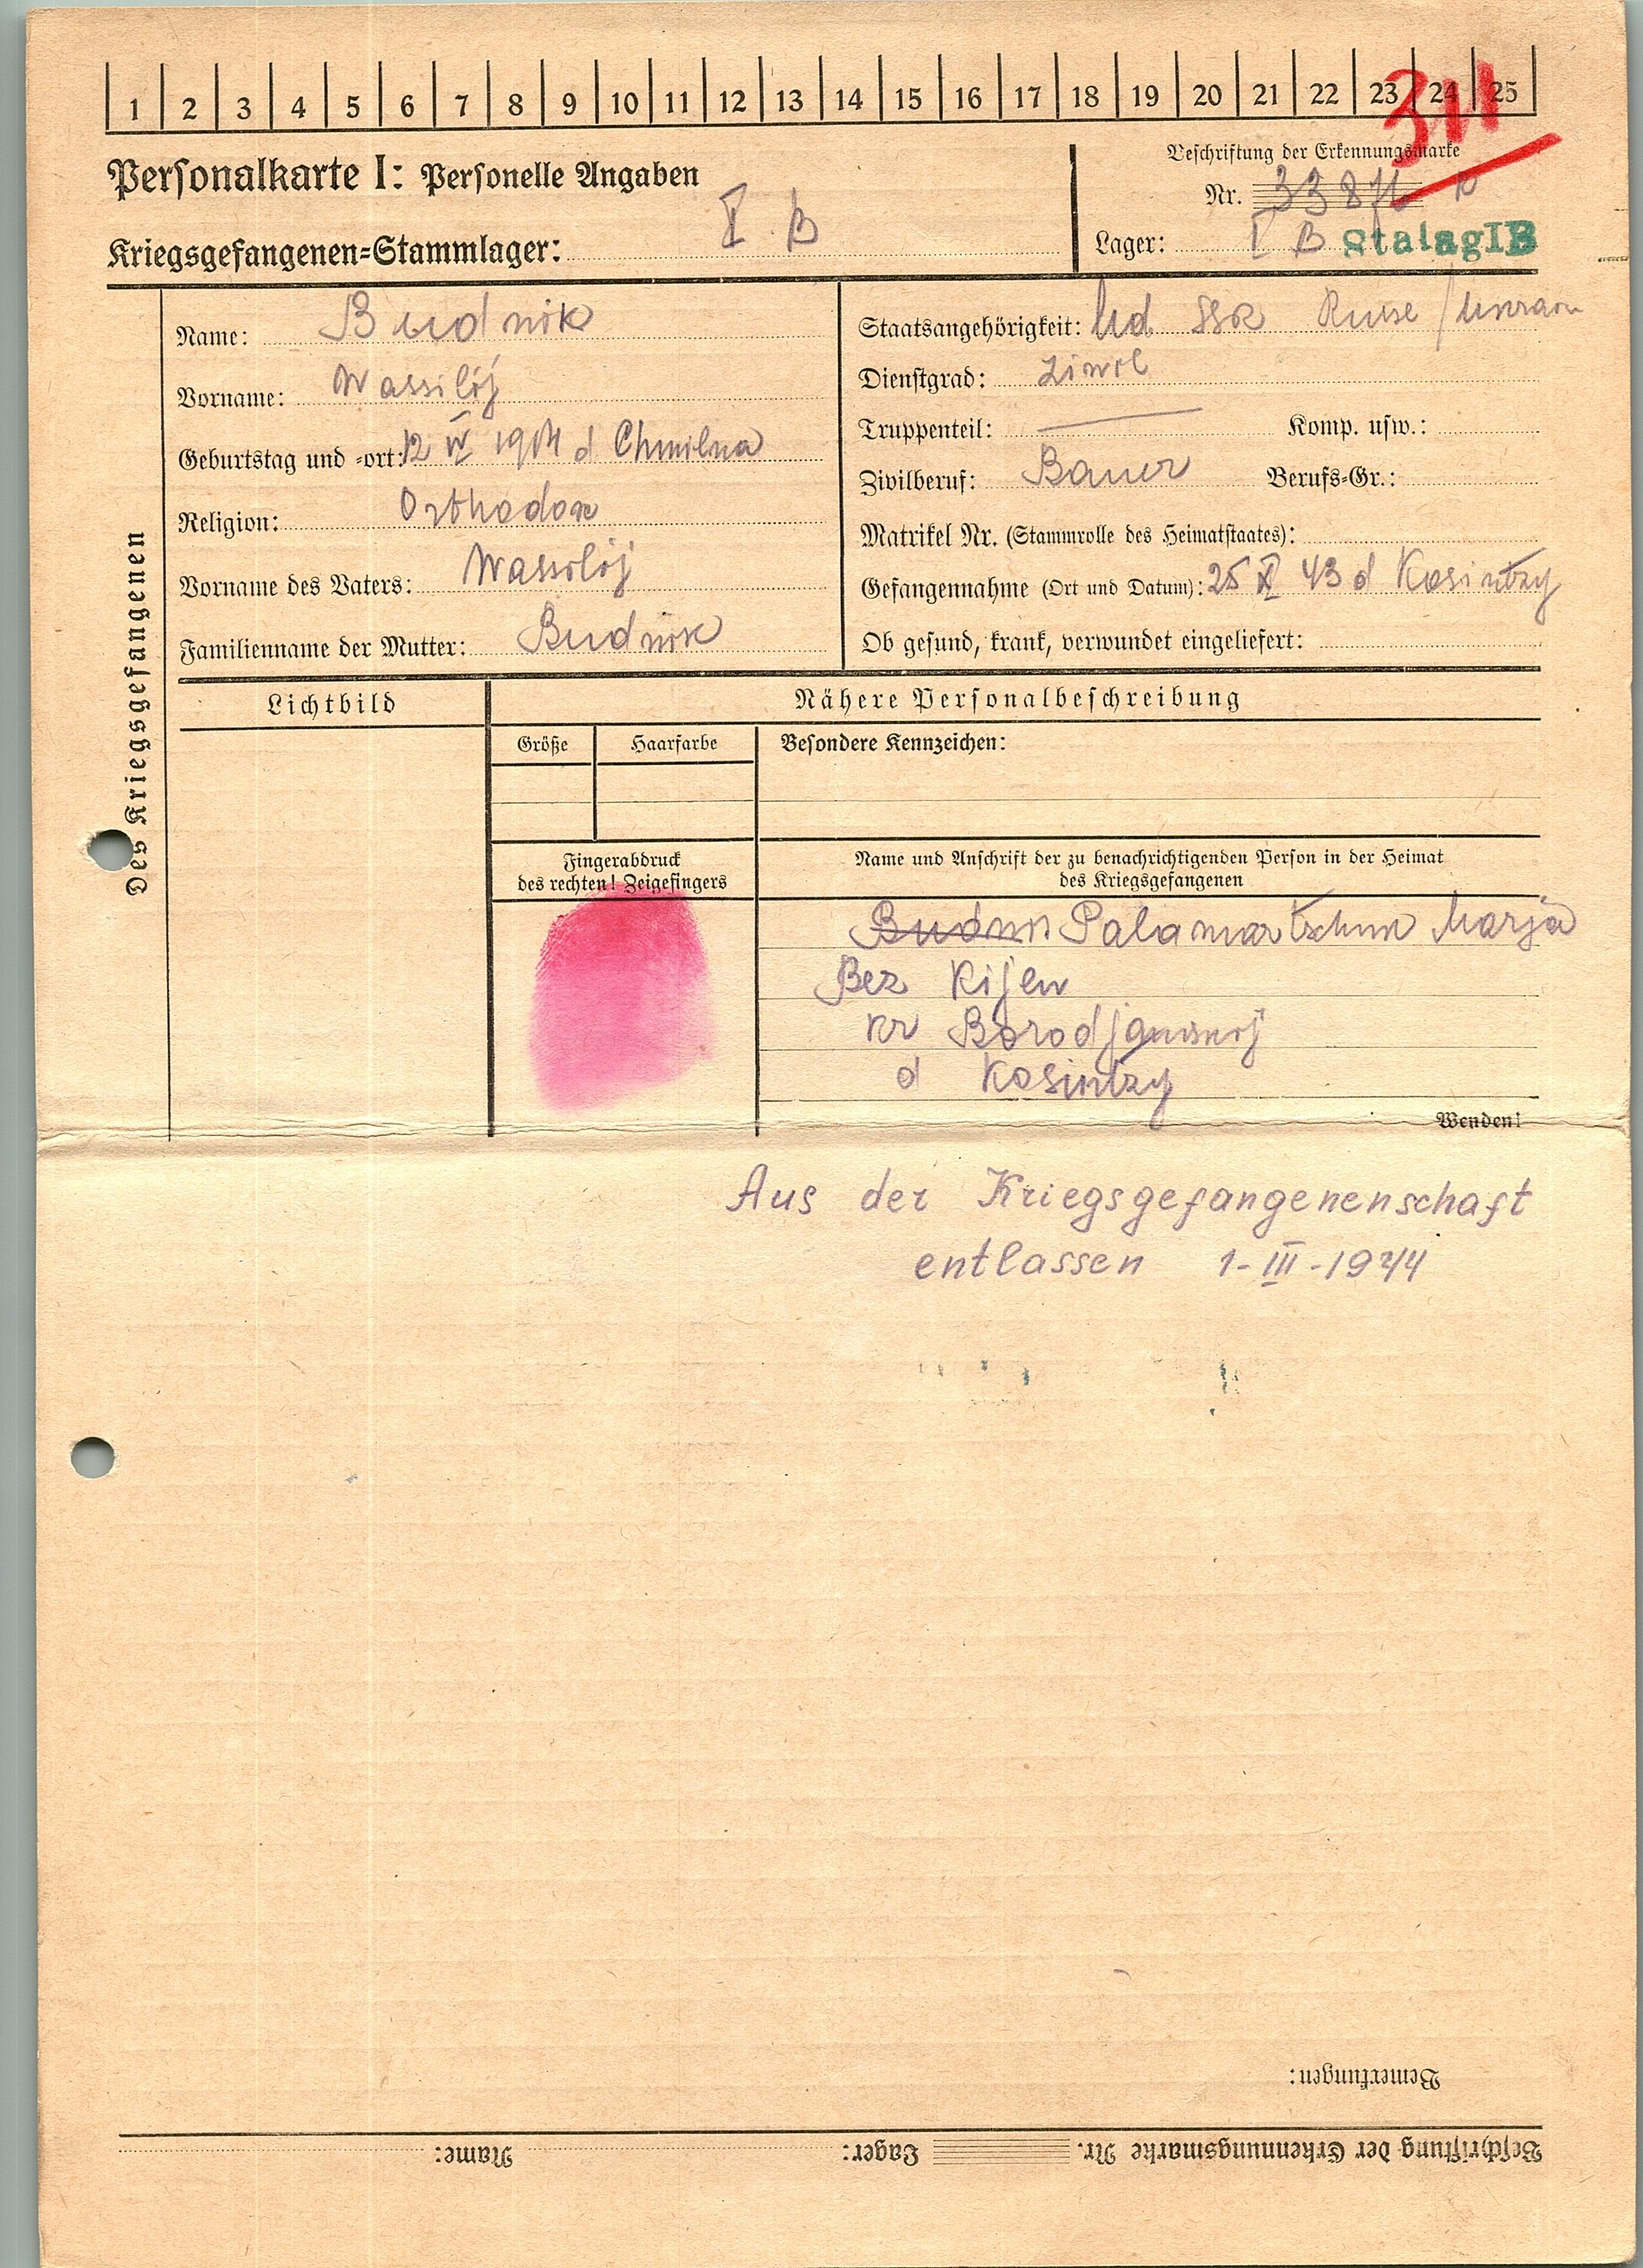 1 2 3 4 5 6 7 8 9 10 11 12 13 14 15 16 17 18 19 20 21 22 23 24 25
311
Personalkarte I: Personelle Angaben
Beschriftung der Erkennungsmarke
Nr.
Kriegsgefangenen=Stammlager: I B
Lager: I B Stalag IB
Des Kriegsgefangenen
Name: Budnik
Vorname: Wassilij
Geburtstag und =ort: 12 IV 1914 d Chmilna
Religion: Orthodox
Vorname des Vaters: Wassilij
Familienname der Mutter: Budnik
Staatsangehörigkeit: Ud SSR Russe /
Dienstgrad: Ziwil
Truppenteil: Komp. usw.:
Zivilberuf: Bauer Berufs=Gr.:
Matrikel Nr. (Stammrolle des Heimatstaates):
Gefangennahme (Ort und Datum): 25 X 43 d Kosintzy
Ob gesund, krank, verwundet eingeliefert:
Lichtbild
Nähere Personalbeschreibung
Größe Haarfarbe Besondere Kennzeichen:
Fingerabdruck
des rechten! Zeigefingers
Name und Anschrift der zu benachrichtigenden Person in der Heimat
des Kriegsgefangenen
Palamartschuk Marja
Bez Kijew
kr
d Kosintzy
Wenden!
Aus der Kriegsgefangenenschaft
entlassen 1-III-1944
Bemerkungen:
Beschriftung der Erkennungsmarke Nr. Lager: Name: